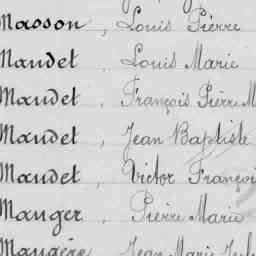 Masson, Louis Pierre
Maudet, Louis Marie
Maudet, François Pierre M
Maudet, Jean Baptiste
Maudet, Victor Françoi
Mauger, Pierre Marie
Maugère, Jean Marie